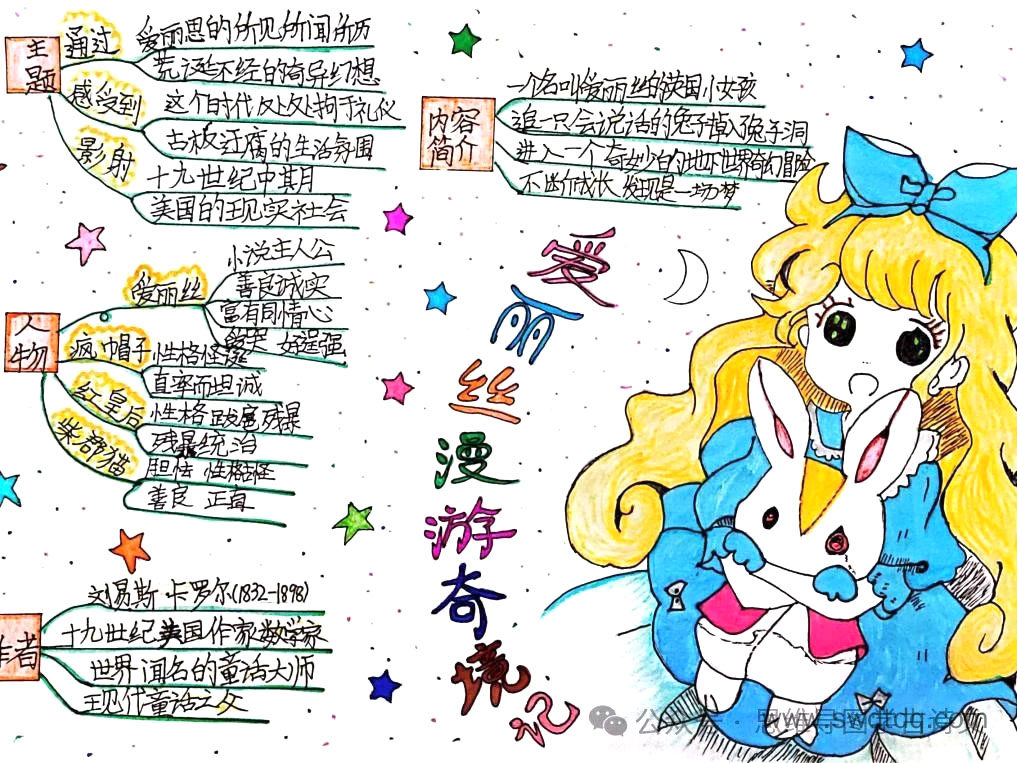 主题
通过
爱丽思的所见所闻所历
荒诞不经的奇异幻想
感受到
这个时代处处拘于礼仪
古板迂腐的生活氛围
影射
十九世纪中其月
美国的现实社会
内容简介
一个名叫爱丽丝的英国小女孩
追一只会说话的兔子掉入兔子洞
进入一个奇妙的地下世界奇幻冒险
不断成长 发现是一场梦
人物
爱丽丝
小说主人公
善良诚实
富有同情心
爱哭 好逞强
疯帽子
性格怪诞
直率而坦诚
红皇后
性格 跋扈残暴
残暴统治
柴郡猫
胆怯 性格怪
善良 正直
作者
刘易斯 卡罗尔(1832-1898)
十九世纪英国作家数学家
世界闻名的童话大师
现代童话之父
爱丽丝漫游奇境记
公众号
www.swdtdq.com